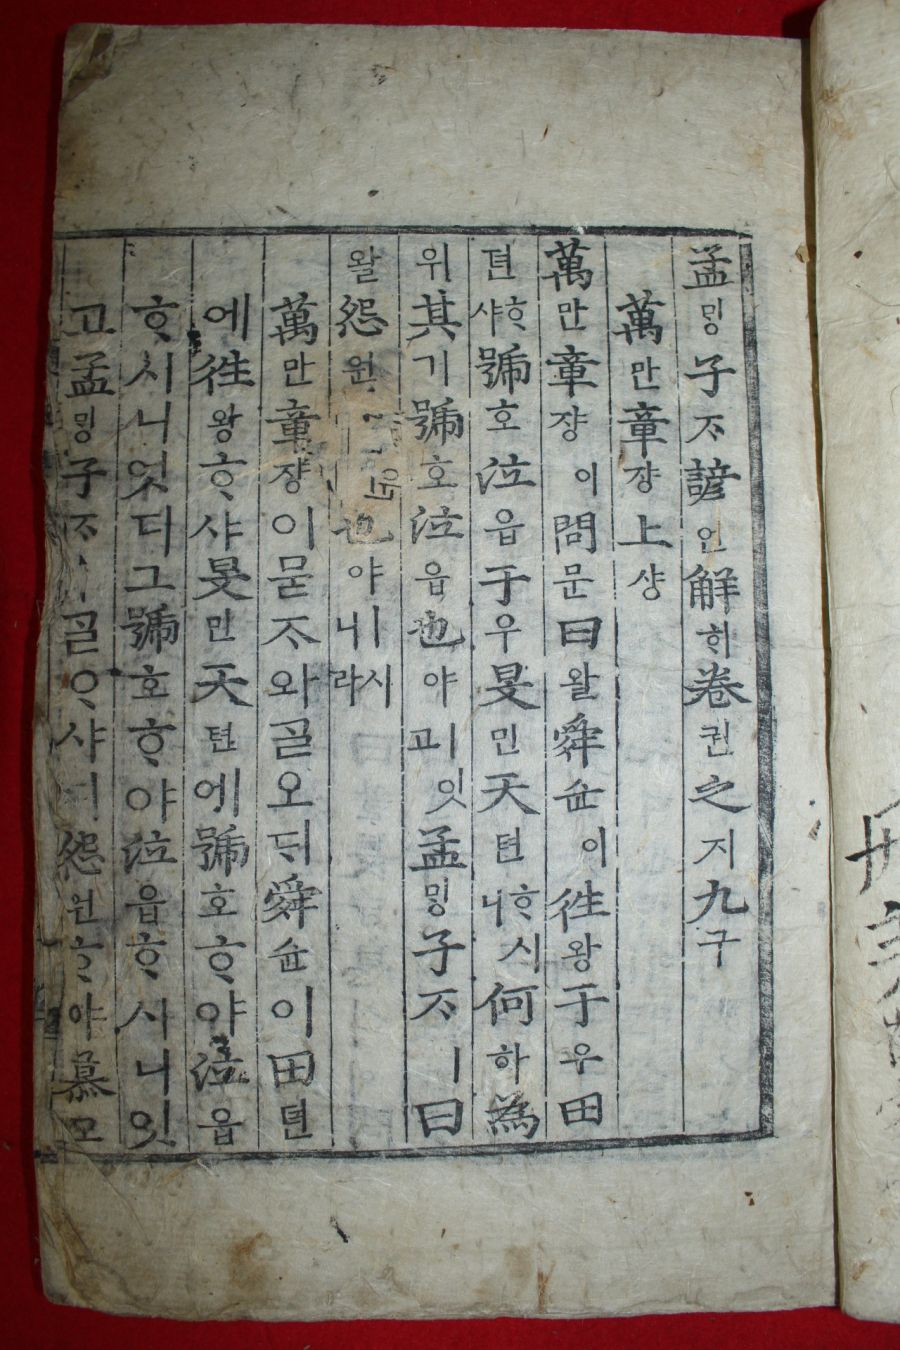 孟ᄆᆡᆼ子ᄌᆞ諺언解ᄒᆡ卷권之지九구
萬만章쟝上샹
萬만章쟝이問문曰왈舜슌이往왕于우田
뎐ᄒᆞ샤號호泣읍于우旻민天텬ᄒᆞ시니何하為
위其기號호泣읍也야ㅣ잇고孟ᄆᆡᆼ子ᄌᆞㅣ曰
왈怨원也야ㅣ시니라
萬만章쟝이묻ᄌᆞ와ᄀᆞᆯ오ᄃᆡ舜슌이田뎐
에往왕ᄒᆞ샤旻민天텬에號호ᄒᆞ야泣읍
ᄒᆞ시니엇디그號호ᄒᆞ야泣읍ᄒᆞ시니잇
고孟ᄆᆡᆼ子ᄌᆞㅣᄀᆞᆯᄋᆞ샤ᄃᆡ怨원ᄒᆞ야慕모